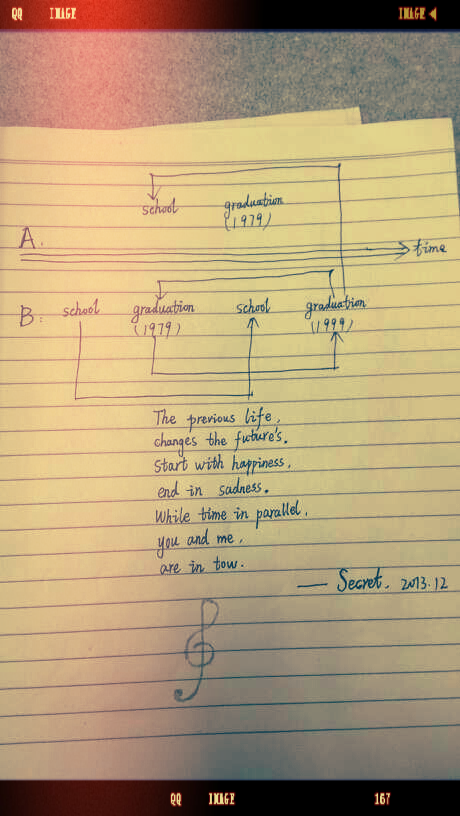 QQ IMAGE IMAGE
school graduation
(1979)
A. time
B: school graduation school graduation
(1979) (1999)
The previous life,
changes the future's.
Start with happiness,
end in sadness.
While time in parallel,
you and me,
are in tow.
— Secret. 2013.12
QQ IMAGE 167